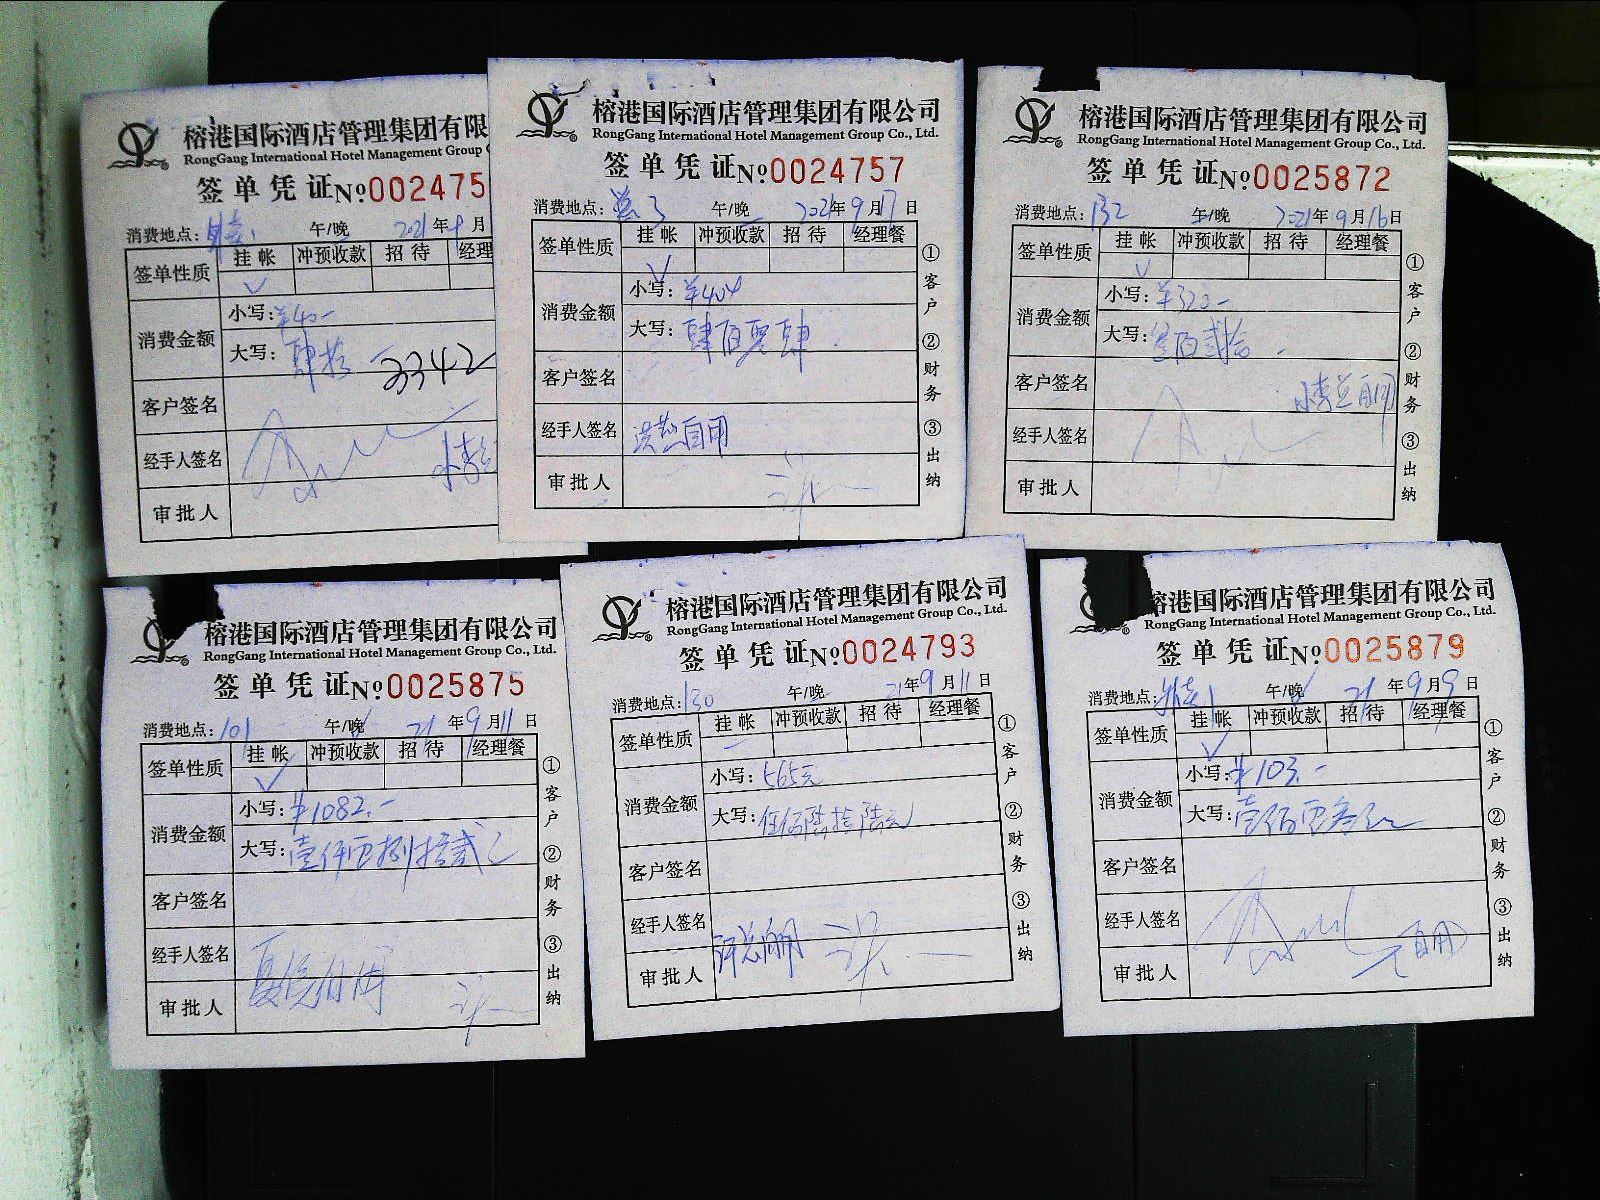 榕港国际酒店管理集团有限
RongGang International Hotel Management Group
签单凭证 №002475
消费地点: 午/晚 2021年 月
签单性质 挂帐 冲预收款 招待 经理
消费金额 小写:¥40-
大写:肆拾 3342
客户签名
经手人签名
审批人
榕港国际酒店管理集团有限公司
RongGang International Hotel Management Group Co., Ltd.
签单凭证 №0024757
消费地点: 午/晚 2021年9月17日
签单性质 挂帐 冲预收款 招待 经理餐
消费金额 小写:¥404
大写:肆佰零肆
客户签名
经手人签名 自用
审批人
①客户 ②财务 ③出纳
榕港国际酒店管理集团有限公司
RongGang International Hotel Management Group Co., Ltd.
签单凭证 №0025872
消费地点:132 午/晚 2021年9月16日
签单性质 挂帐 冲预收款 招待 经理餐
消费金额 小写:¥320-
大写:叁佰贰拾
客户签名 小李总自用
经手人签名
审批人
①客户 ②财务 ③出纳
榕港国际酒店管理集团有限公司
RongGang International Hotel Management Group Co., Ltd.
签单凭证 №0025875
消费地点:101 午/晚 21年9月11日
签单性质 挂帐 冲预收款 招待 经理餐
消费金额 小写:¥1082.-
大写:壹仟零捌拾贰元
客户签名
经手人签名
审批人
①客户 ②财务 ③出纳
榕港国际酒店管理集团有限公司
RongGang International Hotel Management Group Co., Ltd.
签单凭证 №0024793
消费地点:130 午/晚 21年9月11日
签单性质 挂帐 冲预收款 招待 经理餐
消费金额 小写:565元
大写:伍佰陆拾陆元
客户签名
经手人签名
审批人
①客户 ②财务 ③出纳
榕港国际酒店管理集团有限公司
RongGang International Hotel Management Group Co., Ltd.
签单凭证 №0025879
消费地点: 午/晚 21年9月9日
签单性质 挂帐 冲预收款 招待 经理餐
消费金额 小写:¥103.-
大写:壹佰零叁元
客户签名
经手人签名
审批人 自用
①客户 ②财务 ③出纳